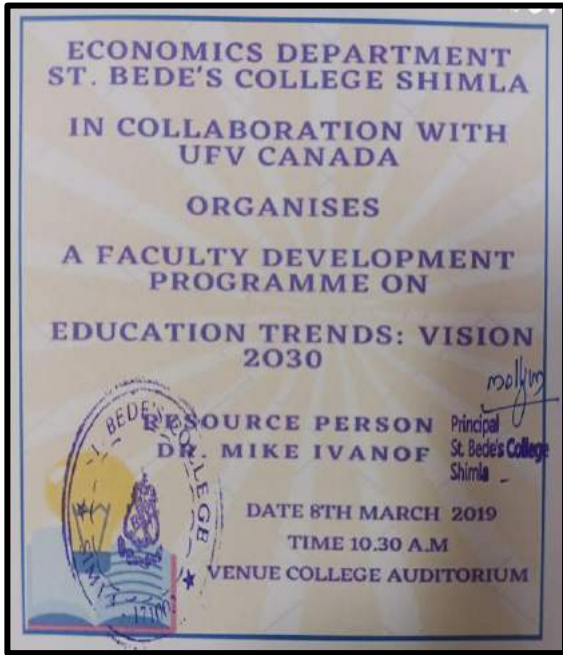 ECONOMICS DEPARTMENT
ST. BEDE'S COLLEGE SHIMLA
IN COLLABORATION WITH
UFV CANADA
ORGANISES
A FACULTY DEVELOPMENT
PROGRAMME ON
EDUCATION TRENDS: VISION
2030
RESOURCE PERSON
DR. MIKE IVANOF
Principal
St. Bede's College
Shimla
BEDE'S COLLEGE
DATE 8TH MARCH 2019
TIME 10.30 A.M
VENUE COLLEGE AUDITORIUM